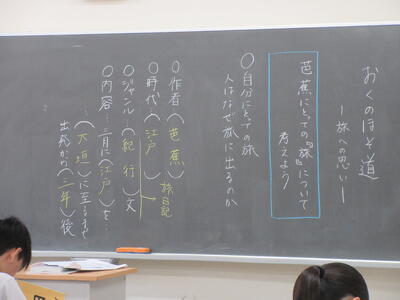 おくのほそ道
―旅への思い―
芭蕉にとっての『旅』について
考えよう
○自分にとっての旅
人はなぜ旅に出るのか
○作者（芭蕉）
○時代（江戸）
旅日記
○ジャンル…（紀行）文
○内容…三月に（江戸）を
（大垣）に至るまで
出発から（二年）後